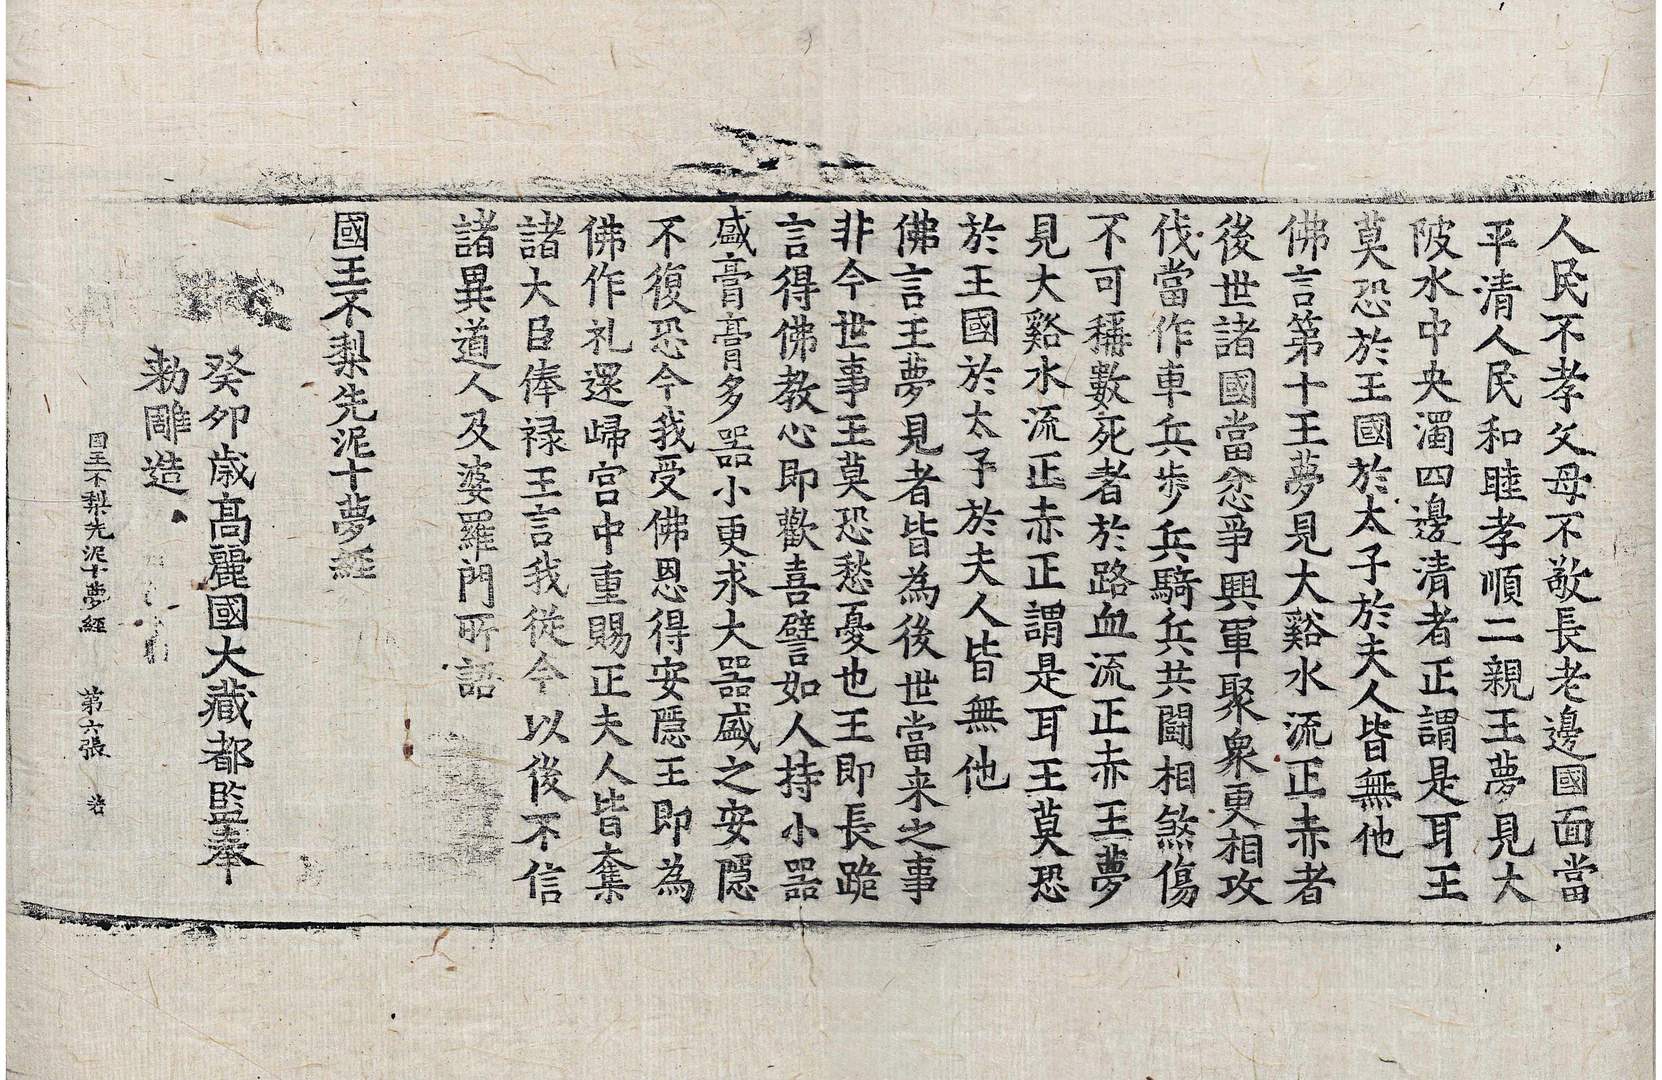 人民不孝父母不敬長老邊國面當
平清人民和睦孝順二親王夢見大
陂水中央濁四邊清者正謂是耳王
莫恐於王國於太子於夫人皆無他
佛言第十王夢見大谿水流正赤者
後世諸國當忿爭興軍聚衆更相攻
伐當作車兵步兵騎兵共鬪相煞傷
不可稱數死者於路血流正赤王夢
見大谿水流正赤正謂是耳王莫恐
於王國於太子於夫人皆無他
佛言王夢見者皆為後世當来之事
非今世事王莫恐愁憂也王即長跪
言得佛教心即歡喜譬如人持小器
盛膏膏多器小更求大器盛之安隱
不復恐今我受佛恩得安隱王即為
佛作礼還歸宮中重賜正夫人皆奪
諸大臣俸禄王言我從今以後不信
諸異道人及婆羅門所語
國王不梨先泥十夢經
癸卯歳高麗國大藏都監奉
勑雕造
國王不梨先泥十夢經 第六張